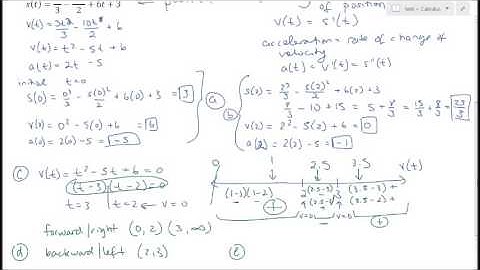 s(t) = t³/3 - 5t²/2 + 6t + 3 ← position
of position
v(t) = s'(t)
v(t) = 3t²/3 - 10t/2 + 6
v(t) = t² - 5t + 6
a(t) = 2t - 5
acceleration = rate of change of
velocity
a(t) = v'(t) = s''(t)
initial t = 0
s(0) = 0³/3 - 5(0)²/2 + 6(0) + 3 = 3
v(0) = 0² - 5(0) + 6 = 6
a(0) = 2(0) - 5 = -5
(a)
(b)
s(2) = 2³/3 - 5(2)²/2 + 6(2) + 3
8/3 - 10 + 15 = 5 + 8/3 = 15/3 + 8/3 = 23/3
v(2) = 2² - 5(2) + 6 = 0
a(2) = 2(2) - 5 = -1
(c) v(t) = t² - 5t + 6 = 0
(t - 3)(t - 2) = 0
t = 3 t = 2 ← v = 0
0 2.5 3.5 v(t)
(1-3)(1-2) 2 (2.5-3) - 3 (3.5-3) +
- - (2.5-2) + (3.5-2) +
+ v=0 - v=0 +
forward/right (0, 2) (3, ∞)
(d) backward/left (2, 3) (e)